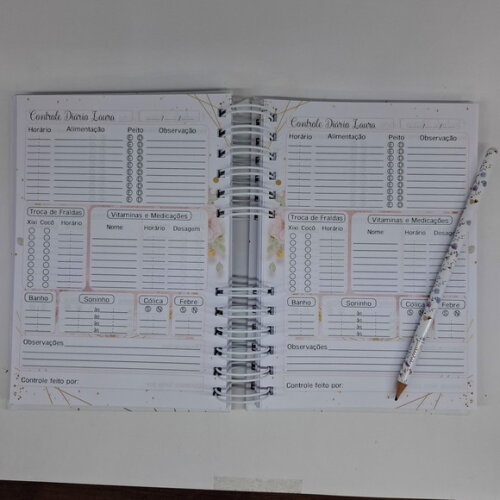 Controle Diário Laura
Horário Alimentação Peito Observação
Troca de Fraldas
Xixi Cocô Horário
Vitaminas e Medicações
Nome Horário Dosagem
Banho Soninho Cólica Febre
às
às
às
às
Observações
Controle feito por:
Controle Diário Laura
Horário Alimentação Peito Observação
Troca de Fraldas
Xixi Cocô Horário
Vitaminas e Medicações
Nome Horário Dosagem
Banho Soninho Cólica Febre
às
às
às
às
Observações
Controle feito por: